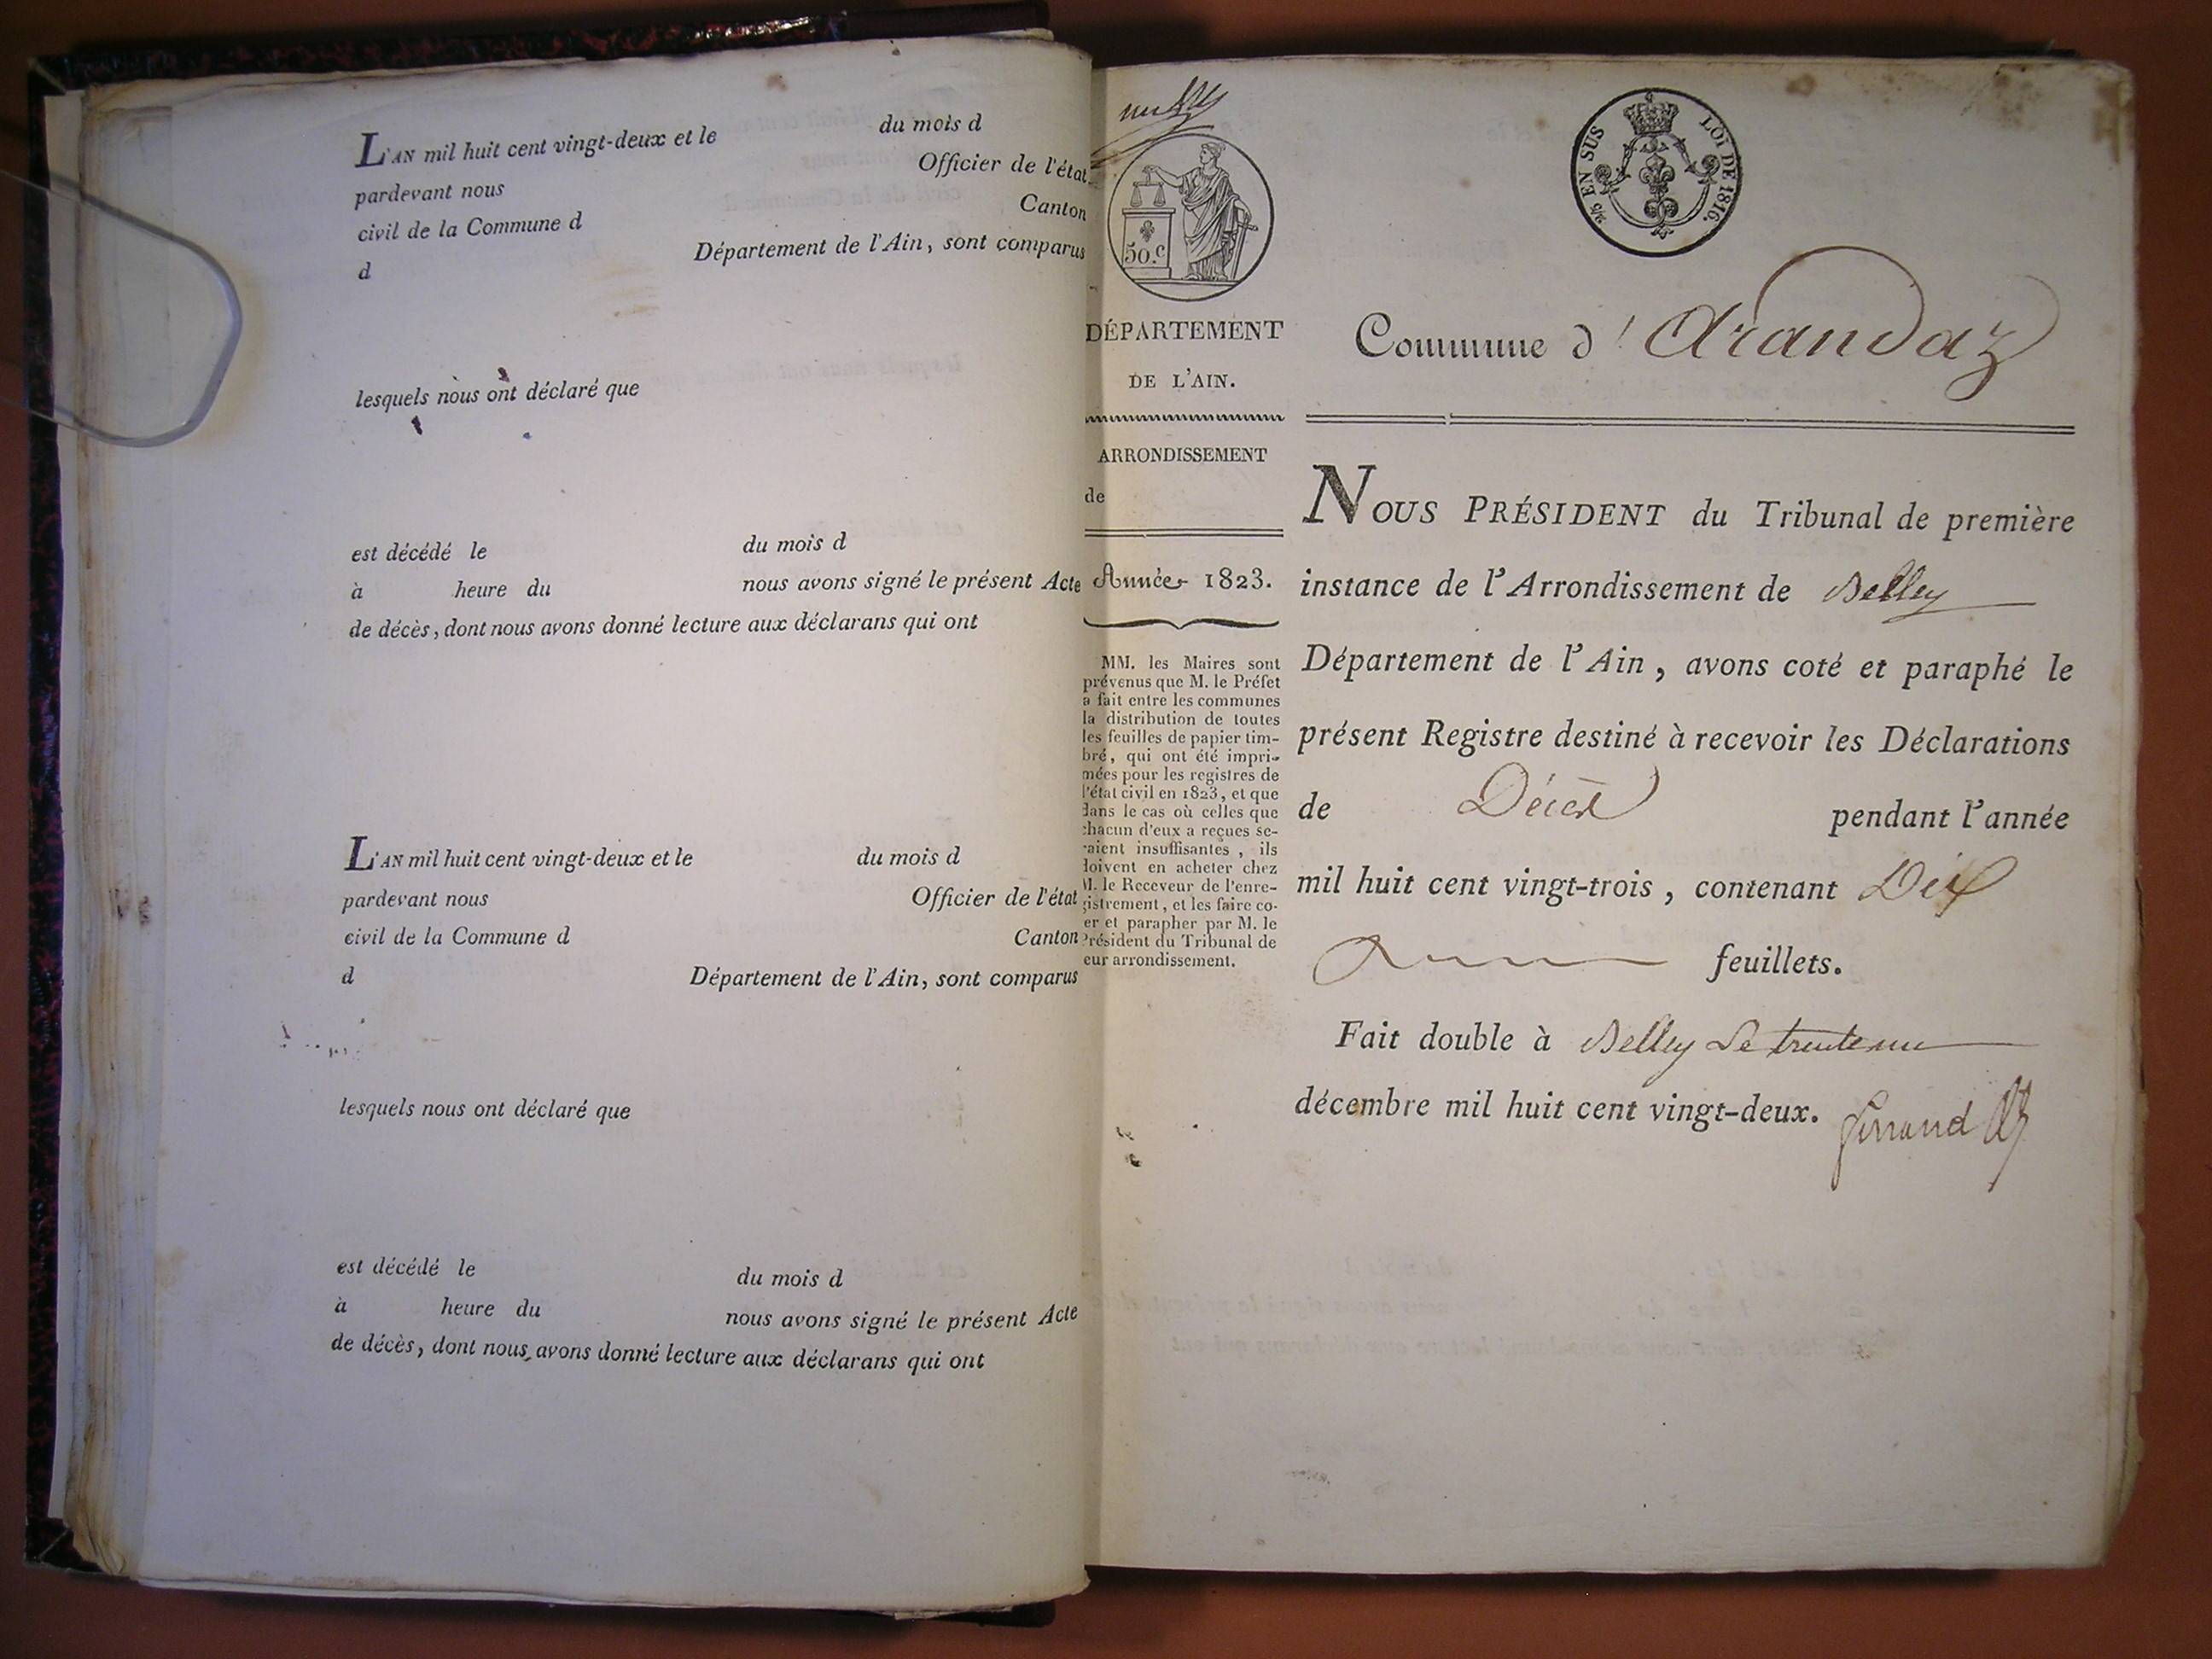 L'AN mil huit cent vingt-deux et le du mois d
pardevant nous Officier de l'état
civil de la Commune d Canton
d Département de l'Ain, sont comparus
lesquels nous ont déclaré que
est décédé le du mois d
à heure du nous avons signé le présent Acte
de décès, dont nous avons donné lecture aux déclarans qui ont
L'AN mil huit cent vingt-deux et le du mois d
pardevant nous Officier de l'état
civil de la Commune d Canton
d Département de l'Ain, sont comparus
lesquels nous ont déclaré que
est décédé le du mois d
à heure du nous avons signé le présent Acte
de décès, dont nous avons donné lecture aux déclarans qui ont
50.c
DÉPARTEMENT
DE L'AIN.
ARRONDISSEMENT
de
Année 1823.
MM. les Maires sont
prévenus que M. le Préfet
a fait entre les communes
la distribution de toutes
les feuilles de papier tim-
bré, qui ont été impri-
mées pour les registres de
l'état civil en 1823, et que
dans le cas où celles que
chacun d'eux a reçues se-
raient insuffisantes, ils
doivent en acheter chez
M. le Receveur de l'enre-
gistrement, et les faire co-
er et parapher par M. le
Président du Tribunal de
eur arrondissement.
2/5 EN SUS LOI DE 1816.
Commune d'Arandaz
NOUS PRÉSIDENT du Tribunal de première
instance de l'Arrondissement de Belley
Département de l'Ain, avons coté et paraphé le
présent Registre destiné à recevoir les Déclarations
de Décès pendant l'année
mil huit cent vingt-trois, contenant Dix
feuillets.
Fait double à Belley Le trente un
décembre mil huit cent vingt-deux.